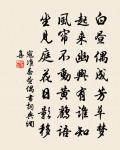 白晝偶成芳草夢
起來幽興有誰知
風簾不動黃鸝語
坐見庭花日影移
寇準春晝偶書詞典網